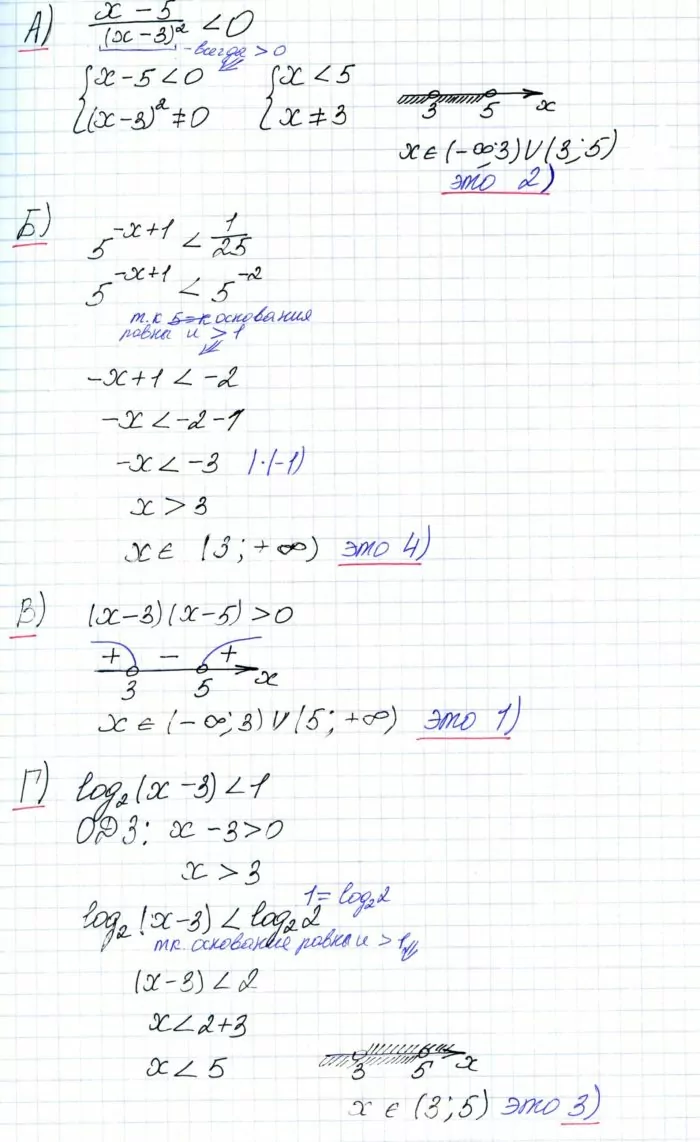 А) x - 5 / (x-3)² < 0
- всегда > 0
{ x - 5 < 0 { x < 5
{ (x-3)² ≠ 0 { x ≠ 3
3 5 x
x ∈ (-∞; 3) ∪ (3; 5)
это 2)
Б) 5^(-x+1) < 1/25
5^(-x+1) < 5^(-2)
т.к основания
равны и > 1
-x+1 < -2
-x < -2-1
-x < -3 |·(-1)
x > 3
x ∈ (3; +∞) это 4)
В) (x-3)(x-5) > 0
+ - +
3 5 x
x ∈ (-∞; 3) ∪ (5; +∞) это 1)
Г) log₂(x-3) < 1
ОДЗ: x - 3 > 0
x > 3
1 = log₂2
log₂(x-3) < log₂2
т.к. основание равны и > 1
(x-3) < 2
x < 2+3
x < 5
3 5 x
x ∈ (3; 5) это 3)